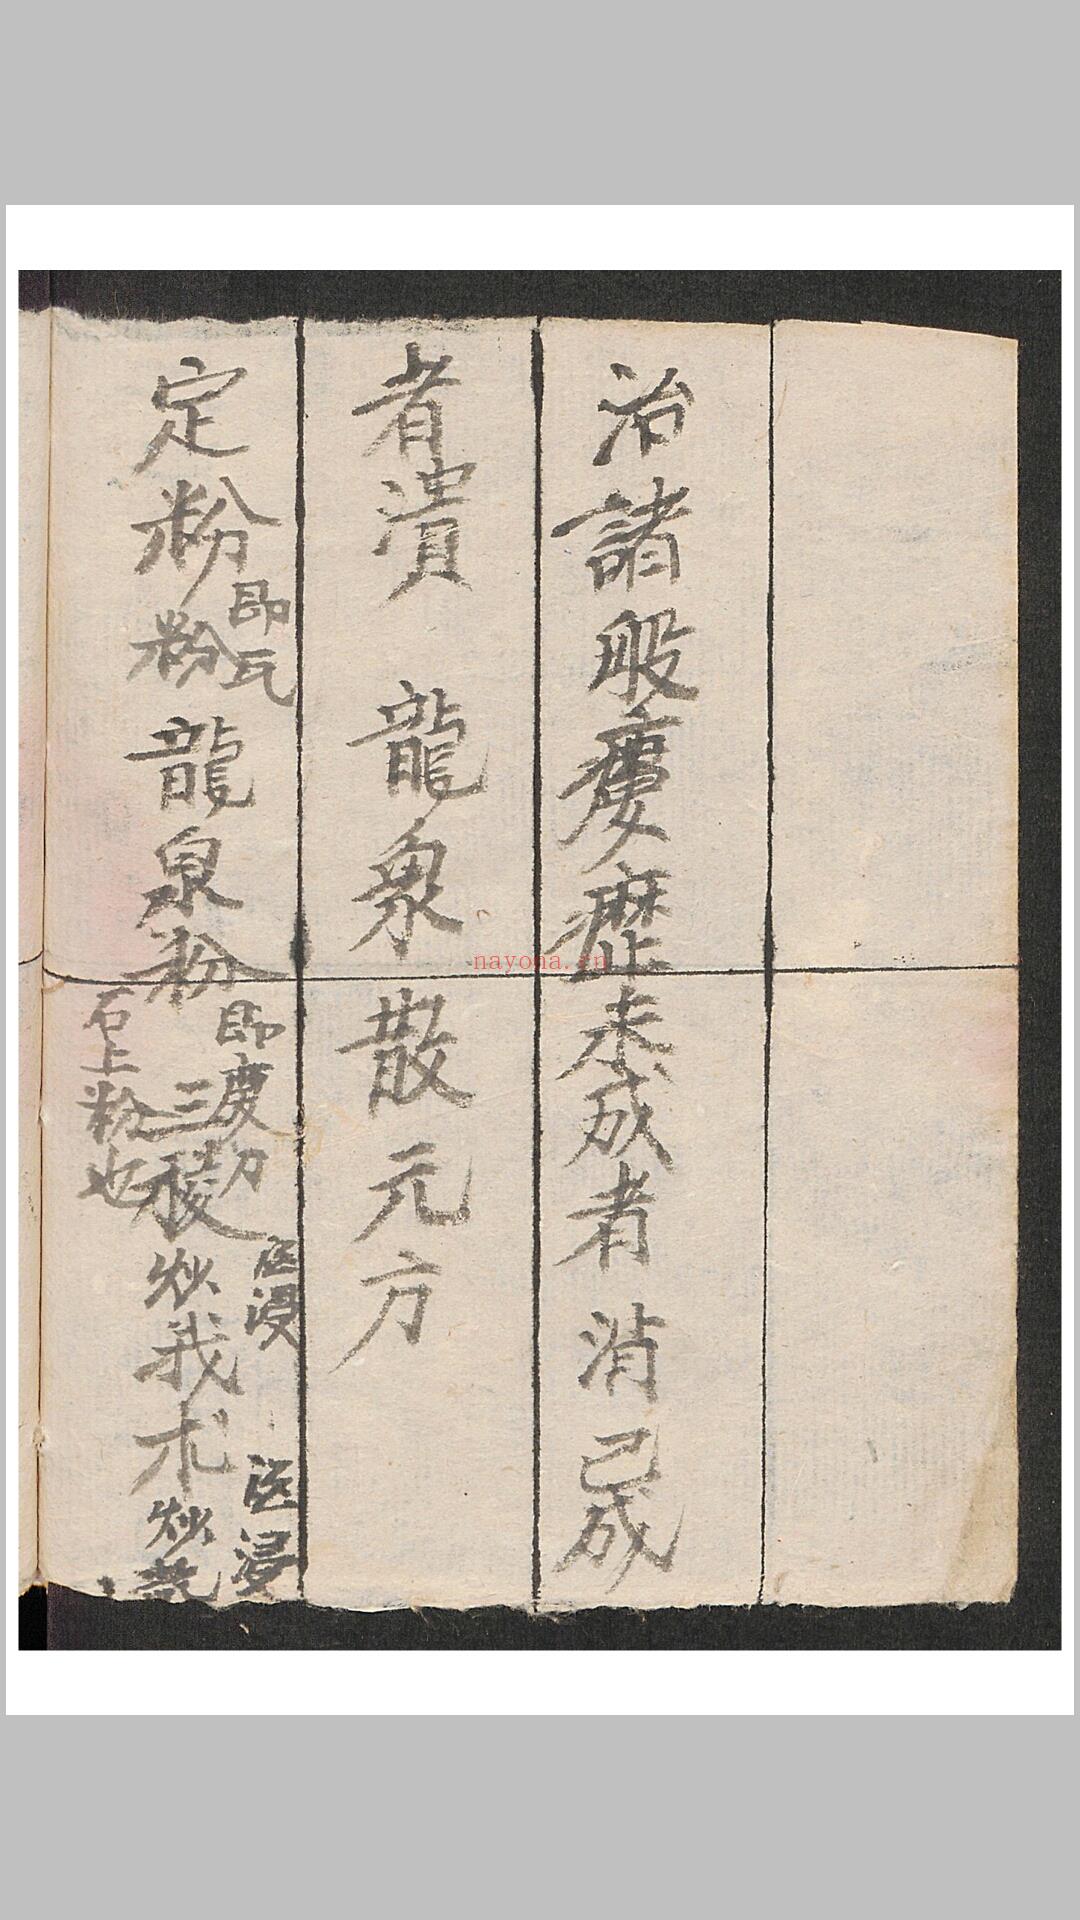 治諸般瘻癧未成者消已成
者潰　龍泉散元方
定粉即瓦粉龍泉粉即磨刀石上粉也三稜醋浸炒莪术醋浸炒
nayona.cn